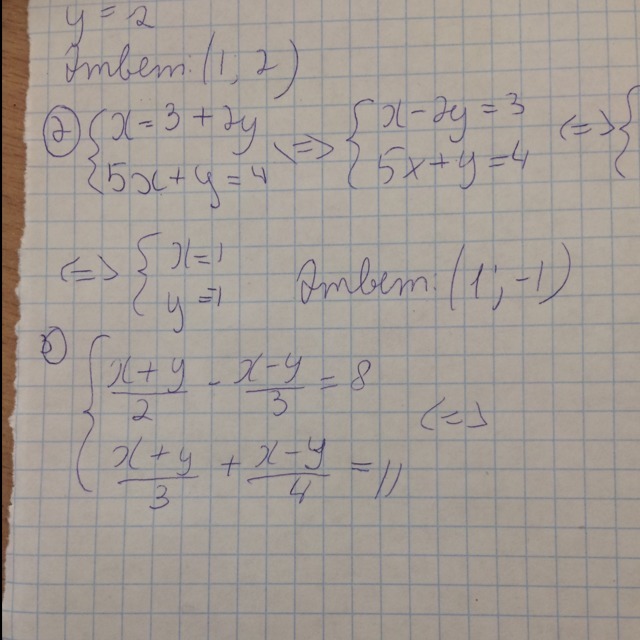 y = 2
Ответ: (1; 2)
2) { x = 3 + 2y <=> { x - 2y = 3 <=> {
5x + y = 4 5x + y = 4
<=> { x = 1 Ответ: (1; -1)
y = 1
3) { (x + y)/2 - (x - y)/3 = 8 <=>
(x + y)/3 + (x - y)/4 = 11